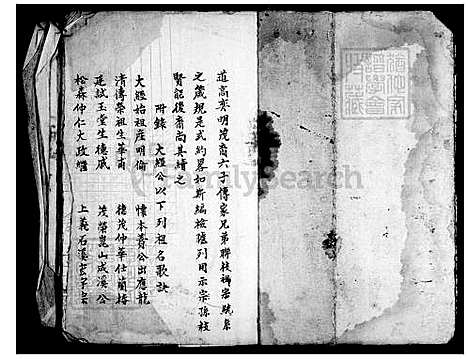 道高齊明茂育六子傳家兄弟聯枝稱宗號系
之歲規是式約畧如斯編檢臚列用示宗孫枝
賢能後裔尚其續之
附錄 大經公以下列祖名歌訣
大經始祖產明倫 懷本養公出應龍
清傳榮祖生華甫 穗茂仲華仕蘭樁
廷試玉堂生德威 茂榮崑山成溪公
松森仲仁大政繼 上義石溪
FamilySearch